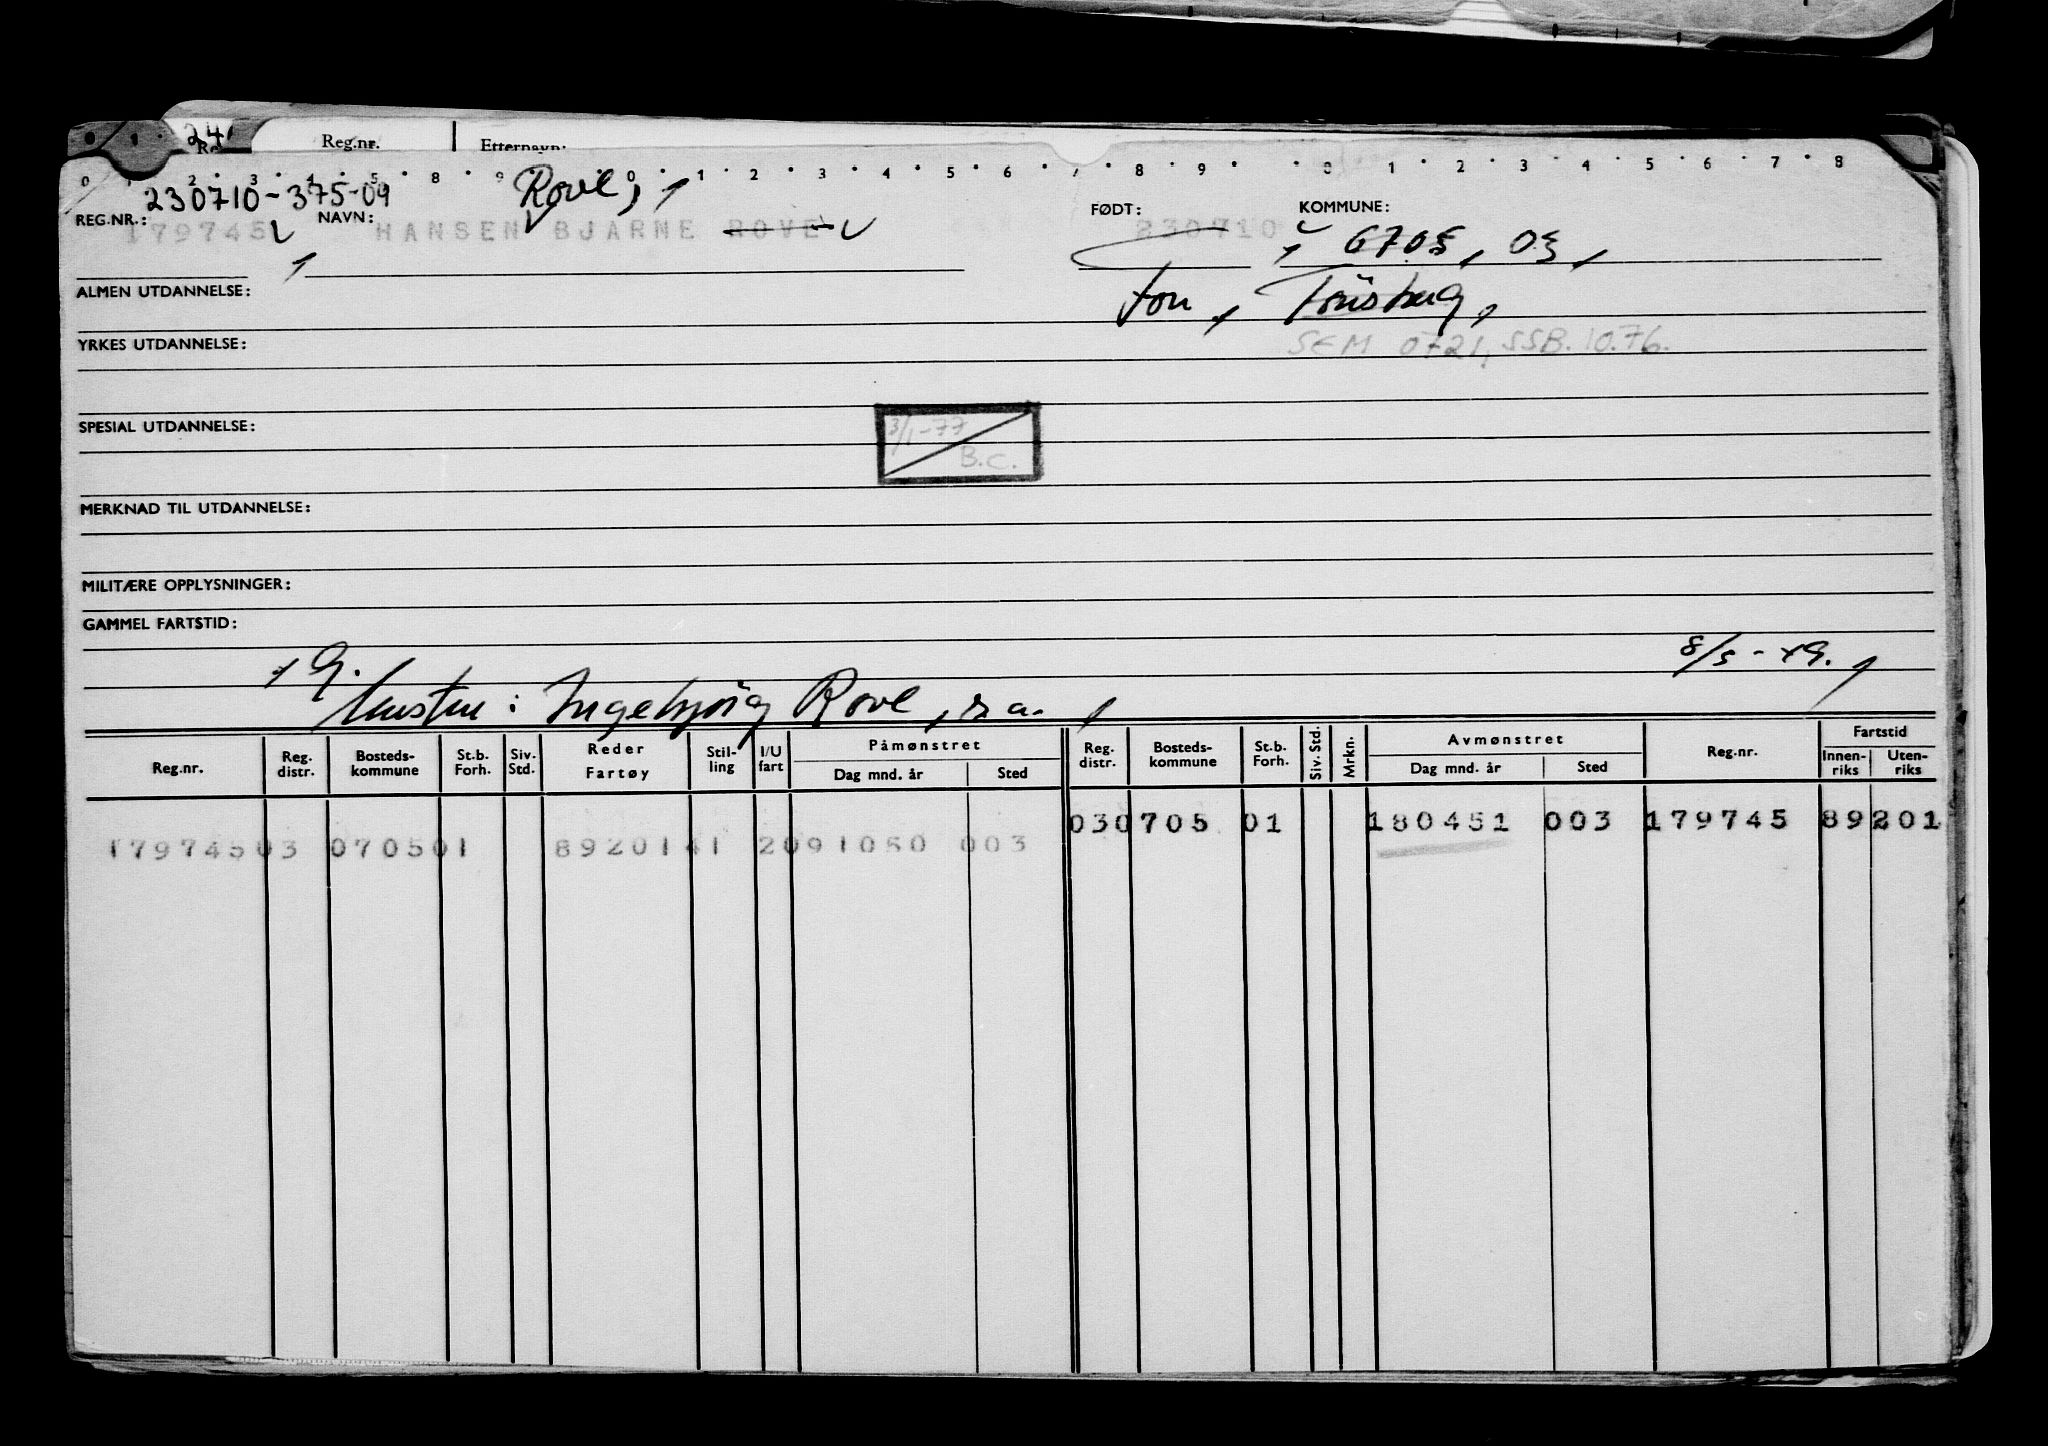 24
Reg.nr. Etternavn:
0 1 2 3 4 5 8 9 0 1 2 3 4 5 6 7 8 9 0 1 2 3 4 5 6 7 8
230710-375-09 Rove,
REG.NR.: 179745 NAVN: HANSEN BJARNE ROVE FØDT: 230710 KOMMUNE:
0705, 03,
ALMEN UTDANNELSE: Tønsberg,
YRKES UTDANNELSE: SEM 0721, SSB. 10.76.
SPESIAL UTDANNELSE: 3/1-77
B.C.
MERKNAD TIL UTDANNELSE:
MILITÆRE OPPLYSNINGER:
GAMMEL FARTSTID:
G. 8/5-49.
: Ingebjørg Rove, s.a.
Reg.nr. Reg. distr. Bosteds-kommune St.b. Forh. Siv. Std. Reder Fartøy Stil-ling I/U fart Påmønstret Dag mnd. år Sted Reg. distr. Bosteds-kommune St.b. Forh. Siv. Std. Mrkn. Avmønstret Dag mnd. år Sted Reg.nr. Fartstid Innen-riks Uten-riks
030705 01 180451 003 179745 89201
17974503 070501 8920141 2091050 003